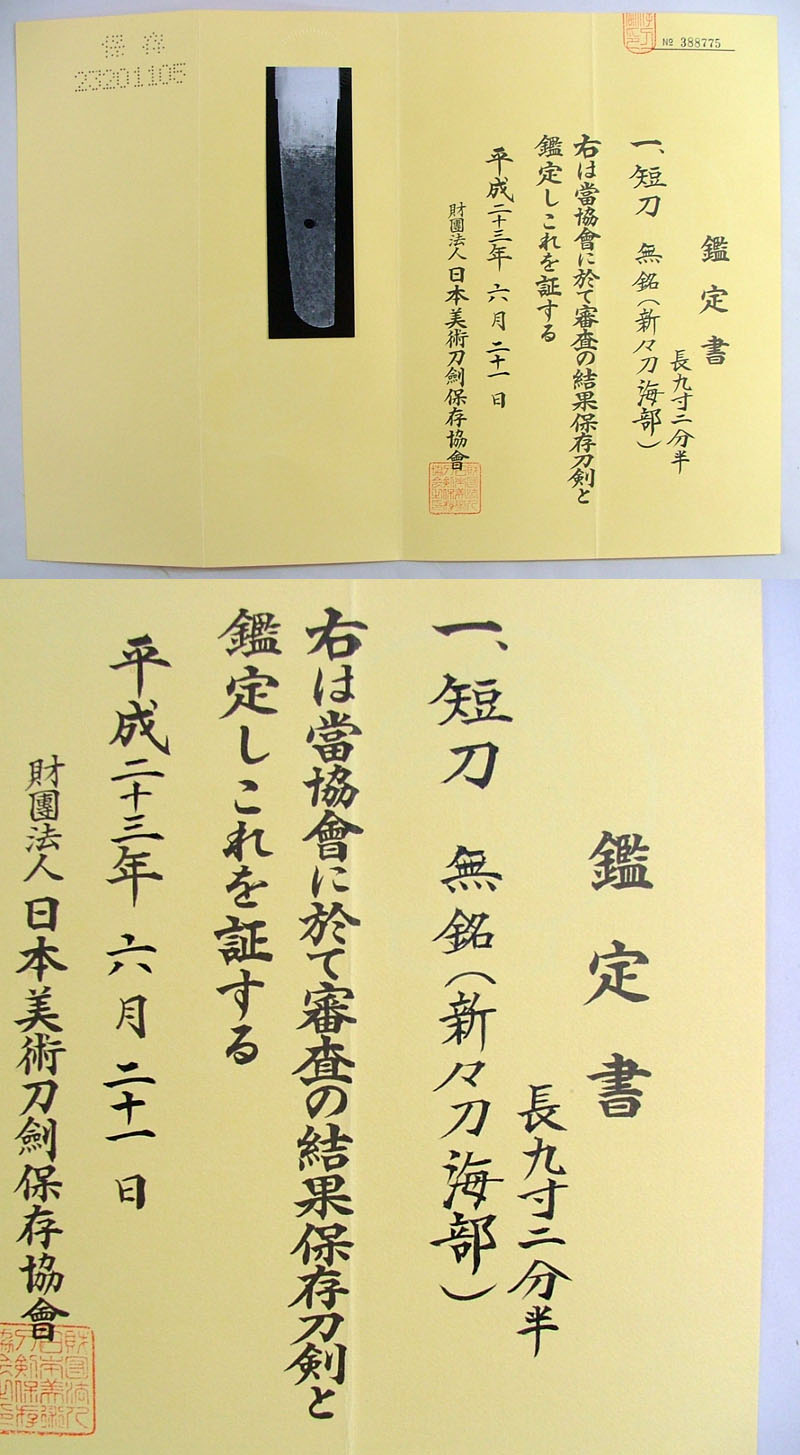 保存
23201105
№ 388775
鑑定書
長九寸二分半
一、短刀 無銘（新々刀海部）
右は當協會に於て審査の結果保存刀剣と
鑑定しこれを証する
平成二十三年 六月 二十一日
財團法人 日本美術刀劍保存協會
鑑定書
長九寸二分半
一、短刀 無銘（新々刀海部）
右は當協會に於て審査の結果保存刀剣と
鑑定しこれを証する
平成二十三年 六月 二十一日
財團法人 日本美術刀劍保存協會